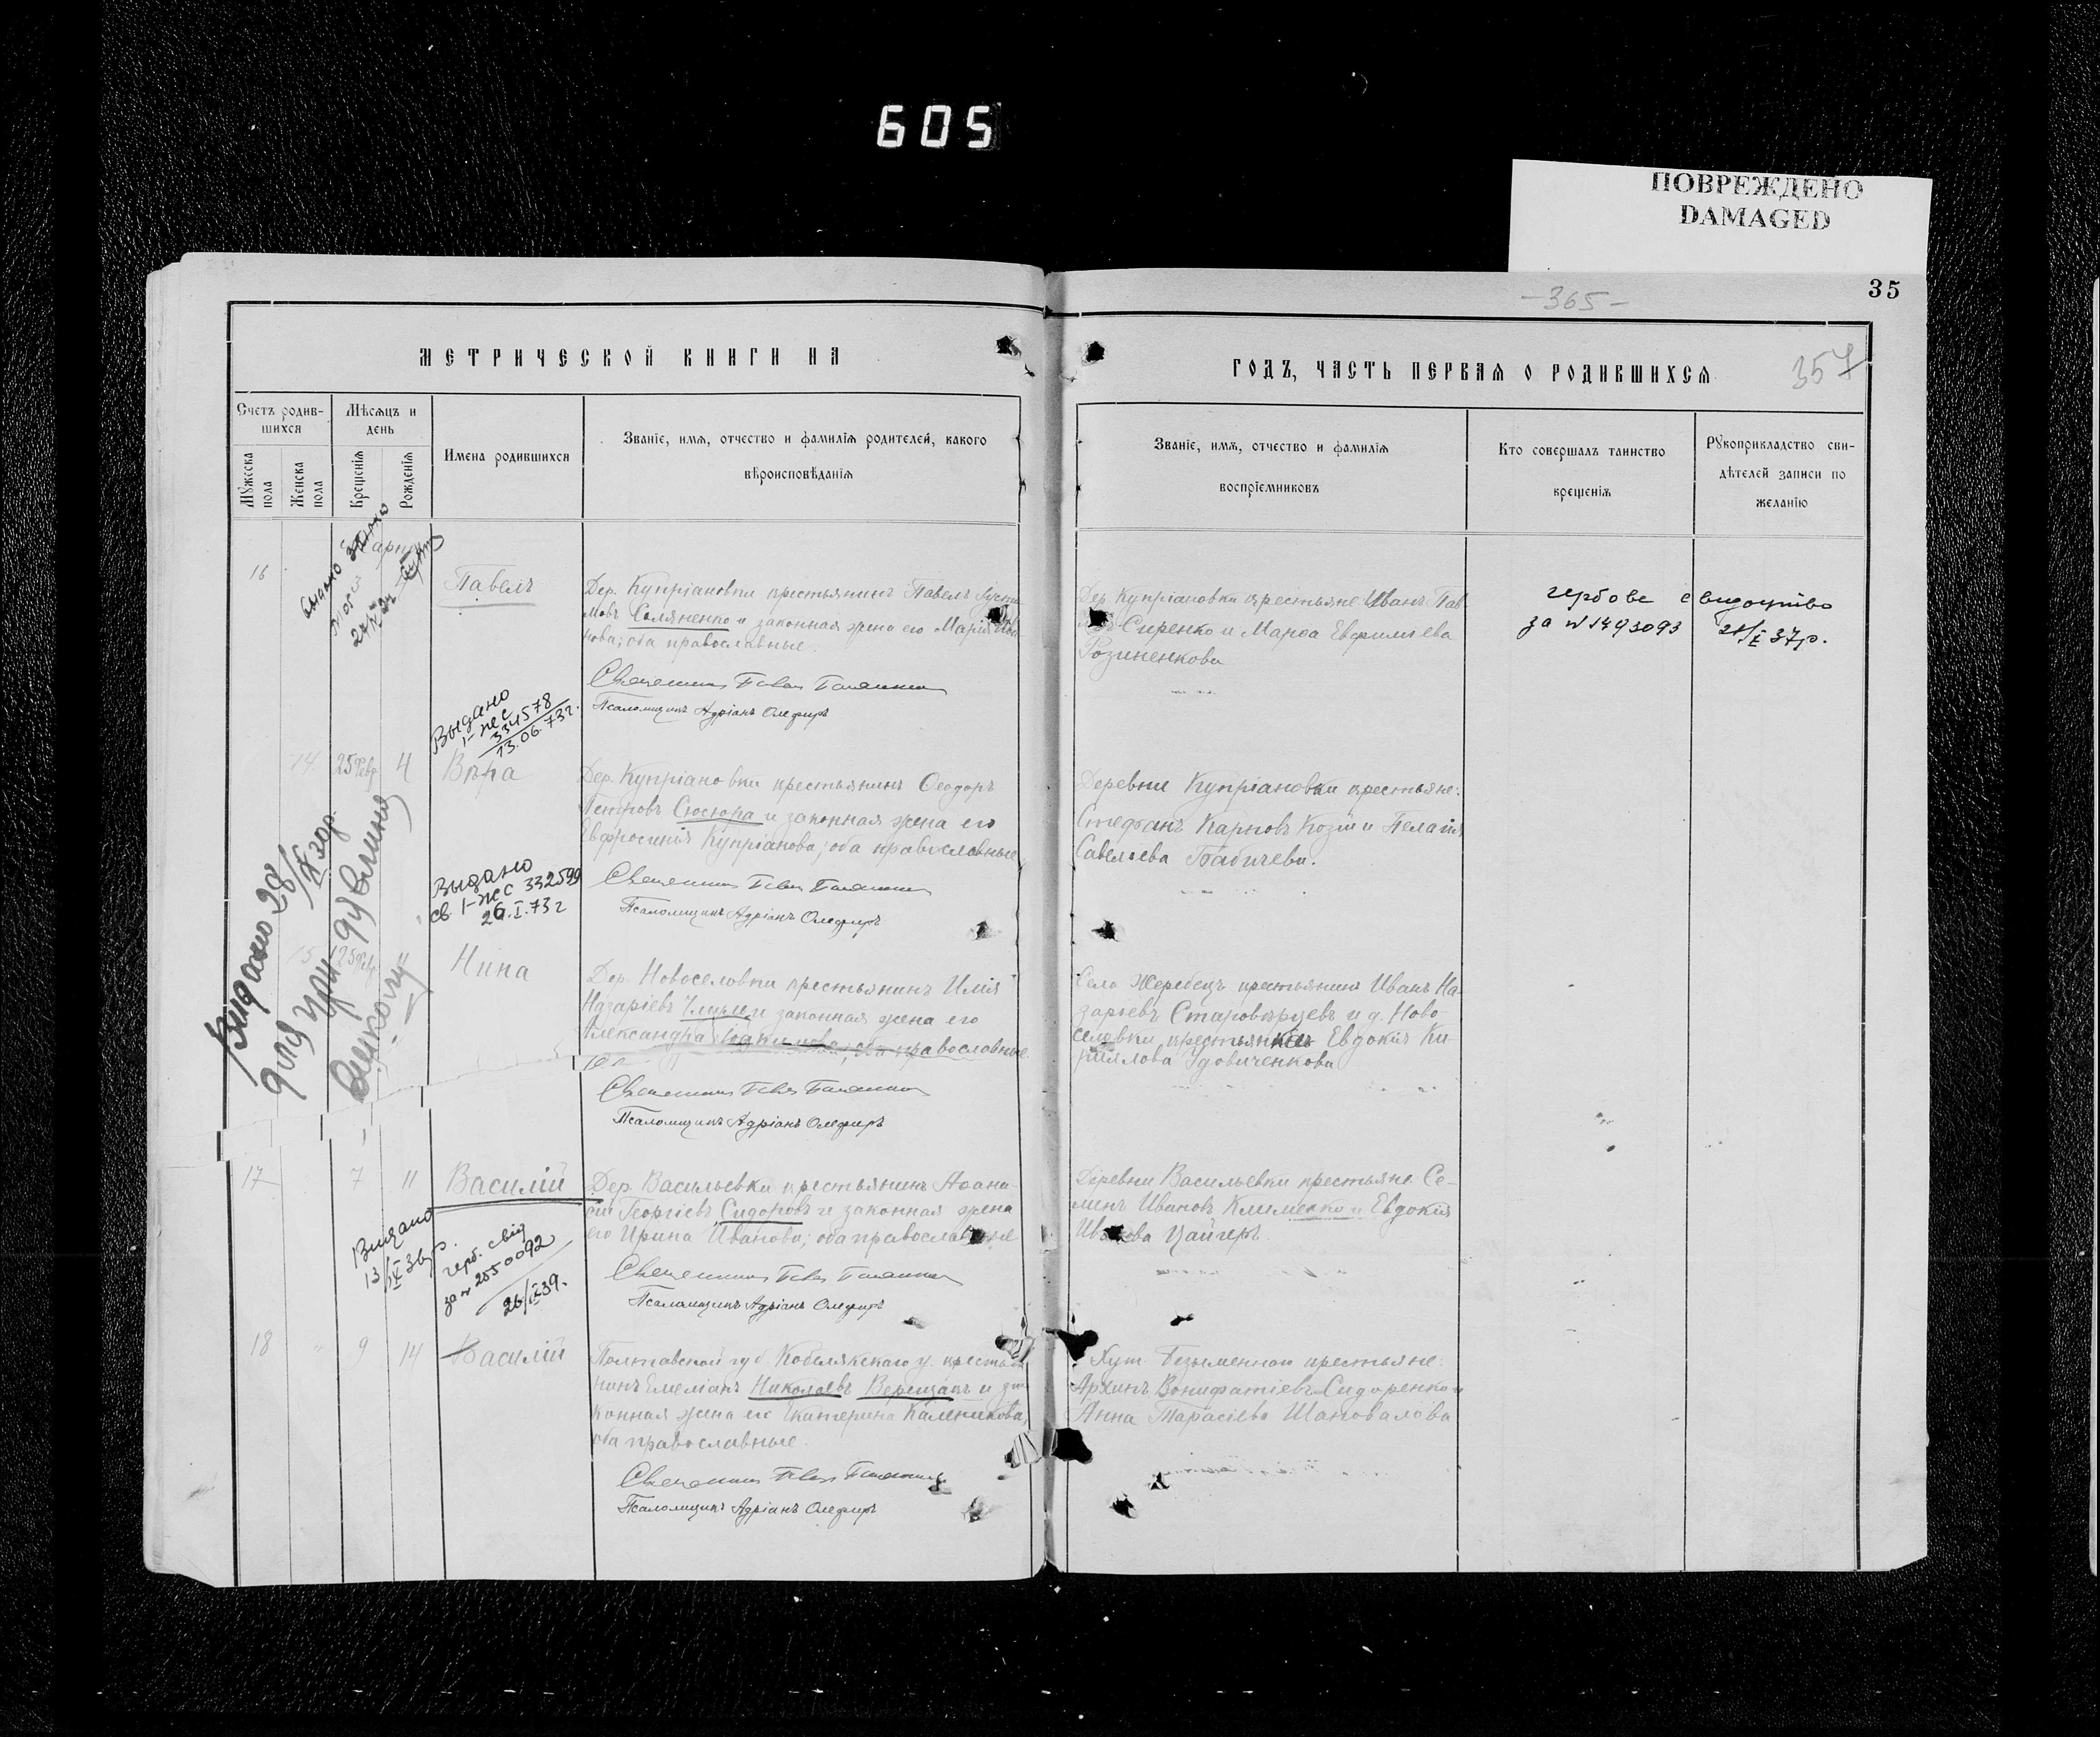 605
ПОВРЕЖДЕНО
DAMAGED
35
-365-
357
МЕТРИЧЕСКОЙ КНИГИ НА
ГОДЪ, ЧАСТЬ ПЕРВАЯ О РОДИВШИХСЯ
Счетъ родив-
шихся
Мужеска
пола
Женска
пола
Мѣсяцъ и
день
Крещенія
Рожденія
Имена родившихся
Званіе, имя, отчество и фамилія родителей, какого
вѣроисповѣданія
Званіе, имя, отчество и фамилія
воспріемниковъ
Кто совершалъ таинство
крещенія
Рукоприкладство сви-
дѣтелей записи по
желанію
16
Павелъ
Дер. Купріановки крестьянинъ Павелъ
Соляненко и законная жена его Марія
нова; оба православные.
Священникъ Павел
Псаломщикъ Адріанъ Олефиръ
Дер. Купріановки крестьяне: Иванъ Пав
Сиренко и Марѳа Евфиміева
Розиненкова
гербове свидоцтво
за № 1493093 21/X 37р.
Выдано
1-жс
334578
13.06.73г.
14 25 Февр 4 Вѣра
Дер. Купріановки крестьянинъ Ѳеодоръ
Петровъ Сюсюра и законная жена его
Евфросинія Купріанова; оба православные
Священникъ Павел
Псаломщикъ Адріанъ Олефиръ
Деревни Купріановки крестьяне:
Стефанъ Карповъ Козій и Пелагія
Савельева Бабичева.
Выдано
св. 1-жс 332599
26.I.73г
15 25 Февр Нина
Дер. Новоселовки крестьянинъ Илія
Назаріевъ и законная жена его
Александра Іоакимова; оба православные
Священникъ Павел
Псаломщикъ Адріанъ Олефиръ
Село Жеребецъ крестьянинъ Иванъ На-
заріевъ Старовѣруевъ и д. Ново-
селовки крестьянка Евдокія Ки-
риллова Удовиченкова
Видано 28/IX 30р.
17 7 11 Василій
Дер. Васильевки крестьянинъ Аѳана-
сій Георгіевъ Сидоровъ и законная жена
его Ирина Иванова; оба православные
Священникъ Павел
Псаломщикъ Адріанъ Олефиръ
Деревни Васильевки крестьяне: Се-
менъ Ивановъ Клименко и Евдокія
Иванова Цайгеръ.
Видано
13/IX 36р.
герб. свід
за № 2550092
26/IX 39.
18 " 9 14 Василій
Полтавской губ. Кобелякскаго у. крестья-
нинъ Емеліанъ Николаевъ Верещакъ и за-
конная жена его Екатерина Каленикова,
оба православные.
Священникъ Павел
Псаломщикъ Адріанъ Олефиръ
Хут. Безыменнаго крестьяне:
Архипъ Вонифатіевъ Сидоренко и
Анна Тарасіева Шаповалова